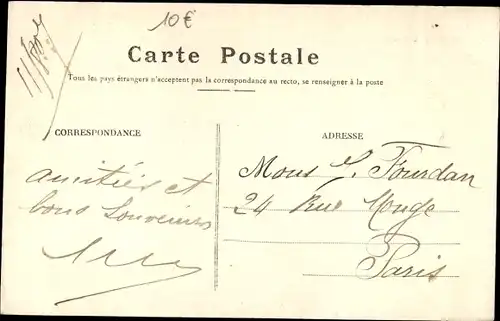 10€
Carte Postale
Tous les pays étrangers n'acceptent pas la correspondance au recto, se renseigner à la poste
CORRESPONDANCE
ADRESSE
amitiés et
bons Souvenirs
Mons J. Fourdan
24 Rue Monge
Paris